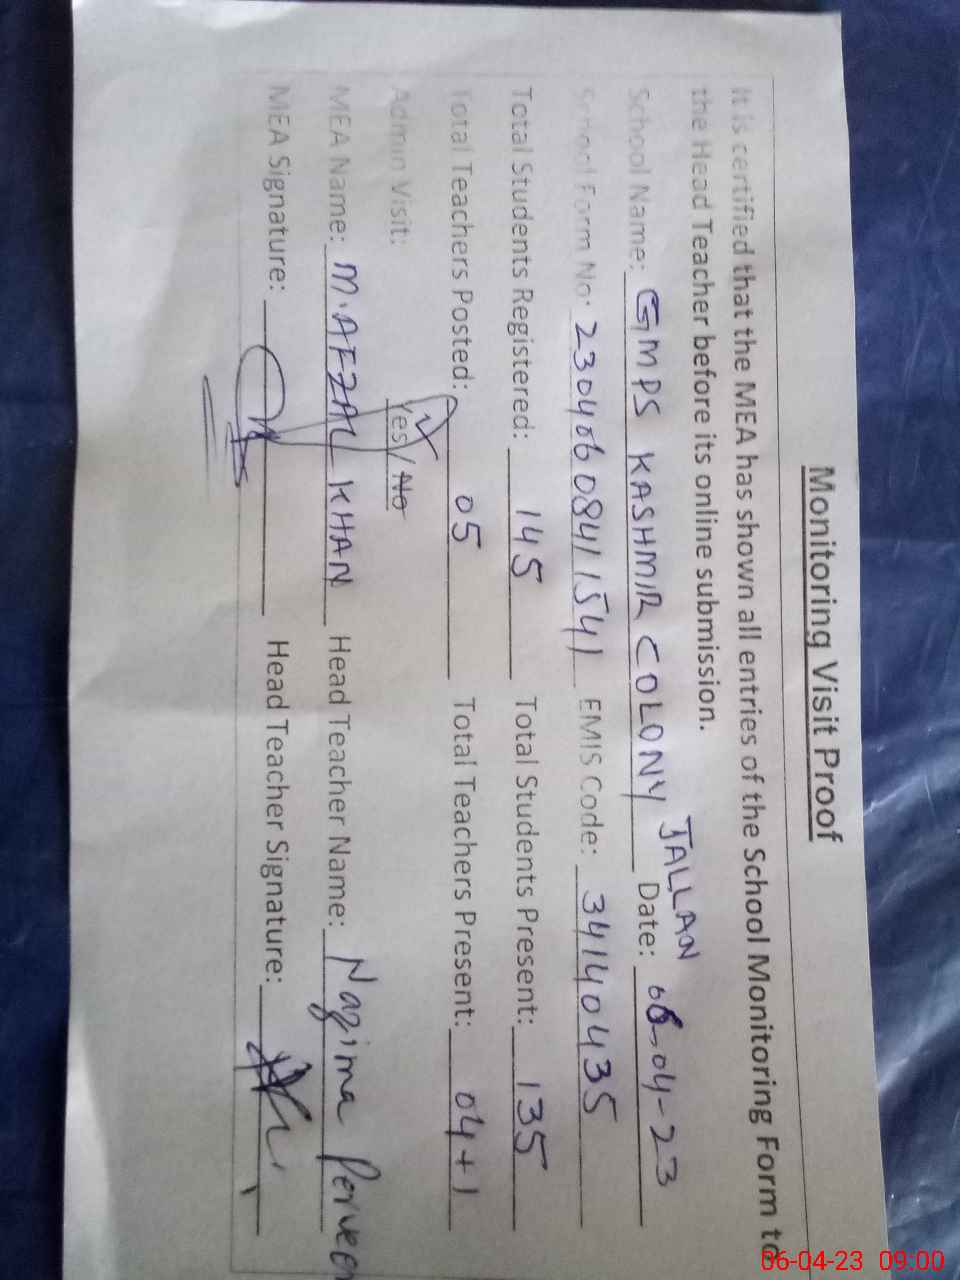 Monitoring Visit Proof
It is certified that the MEA has shown all entries of the School Monitoring Form to
the Head Teacher before its online submission.
JALLAN
School Name: GMPS KASHMIR COLONY Date: 06-04-23
School Form No: 23040608411541 EMIS Code: 34140435
Total Students Registered: 145 Total Students Present: 135
Total Teachers Posted: 05 Total Teachers Present: 04+1
Admin Visit: Yes / No
MEA Name: M.AFZAL KHAN Head Teacher Name: Nagima Perveen
MEA Signature: Head Teacher Signature:
06-04-23 09:00